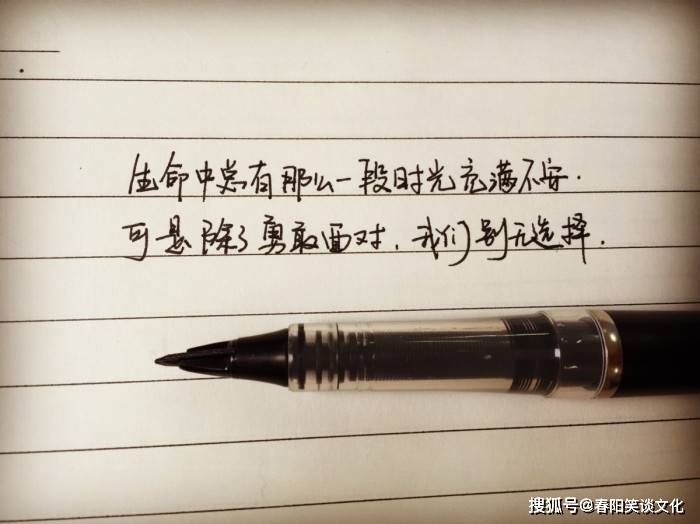 生命中总有那么一段时光充满不安.
可是除了勇敢面对,我们别无选择.
搜狐号@春阳笑谈文化